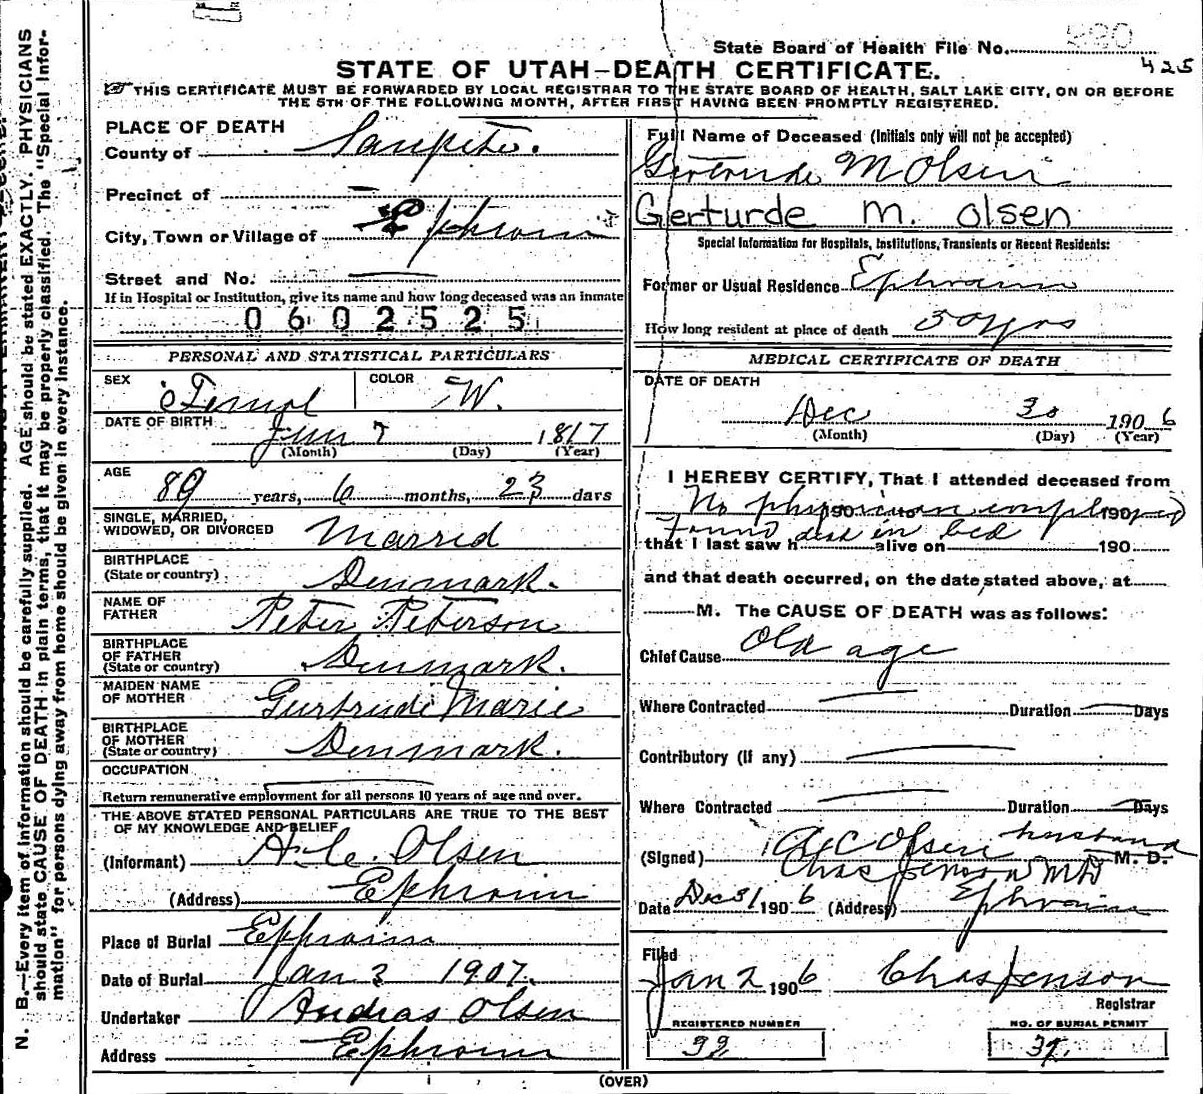 State Board of Health File No. 590
425
STATE OF UTAH—DEATH CERTIFICATE.
THIS CERTIFICATE MUST BE FORWARDED BY LOCAL REGISTRAR TO THE STATE BOARD OF HEALTH, SALT LAKE CITY, ON OR BEFORE
THE 5TH OF THE FOLLOWING MONTH, AFTER FIRST HAVING BEEN PROMPTLY REGISTERED.
PLACE OF DEATH
County of Sanpete.
Precinct of
City, Town or Village of Ephraim
Street and No.
If in Hospital or Institution, give its name and how long deceased was an inmate
0602525
PERSONAL AND STATISTICAL PARTICULARS
SEX Femal COLOR W.
DATE OF BIRTH Jun 7 1817
(Month) (Day) (Year)
AGE 89 years, 6 months, 23 days
SINGLE, MARRIED,
WIDOWED, OR DIVORCED Marrid
BIRTHPLACE
(State or country) Denmark.
NAME OF
FATHER Peter Peterson
BIRTHPLACE
OF FATHER
(State or country) Denmark.
MAIDEN NAME
OF MOTHER Gertrude Marie
BIRTHPLACE
OF MOTHER
(State or country) Denmark.
OCCUPATION
Return remunerative employment for all persons 10 years of age and over.
THE ABOVE STATED PERSONAL PARTICULARS ARE TRUE TO THE BEST
OF MY KNOWLEDGE AND BELIEF
(Informant) A. C. Olsen
(Address) Ephraim
Place of Burial Ephraim
Date of Burial Jan 2 1907.
Undertaker Andras Olsen
Address Ephraim
Full Name of Deceased (Initials only will not be accepted)
Gertrude M Olsen
Gerturde M. Olsen
Special Information for Hospitals, Institutions, Transients or Recent Residents:
Former or Usual Residence Ephraim
How long resident at place of death 50 yrs
MEDICAL CERTIFICATE OF DEATH
DATE OF DEATH
Dec 30 1906
(Month) (Day) (Year)
I HEREBY CERTIFY, That I attended deceased from
No physician employed 190 190
Found dead in bed
that I last saw h alive on 190
and that death occurred, on the date stated above, at
M. The CAUSE OF DEATH was as follows:
Chief Cause Old age
Where Contracted Duration Days
Contributory (if any)
Where Contracted Duration Days
(Signed) A C Olsen husband M. D.
Chas Jenson MD
Date Dec 31 1906 (Address) Ephraim
Filed
Jan 2 1906 Chas Jenson
Registrar
REGISTERED NUMBER NO. OF BURIAL PERMIT
39. 39.
(OVER)
N. B.—Every item of information should be carefully supplied. AGE should be stated EXACTLY. PHYSICIANS
should state CAUSE OF DEATH in plain terms, that it may be properly classified. The "Special Infor-
mation" for persons dying away from home should be given in every instance.